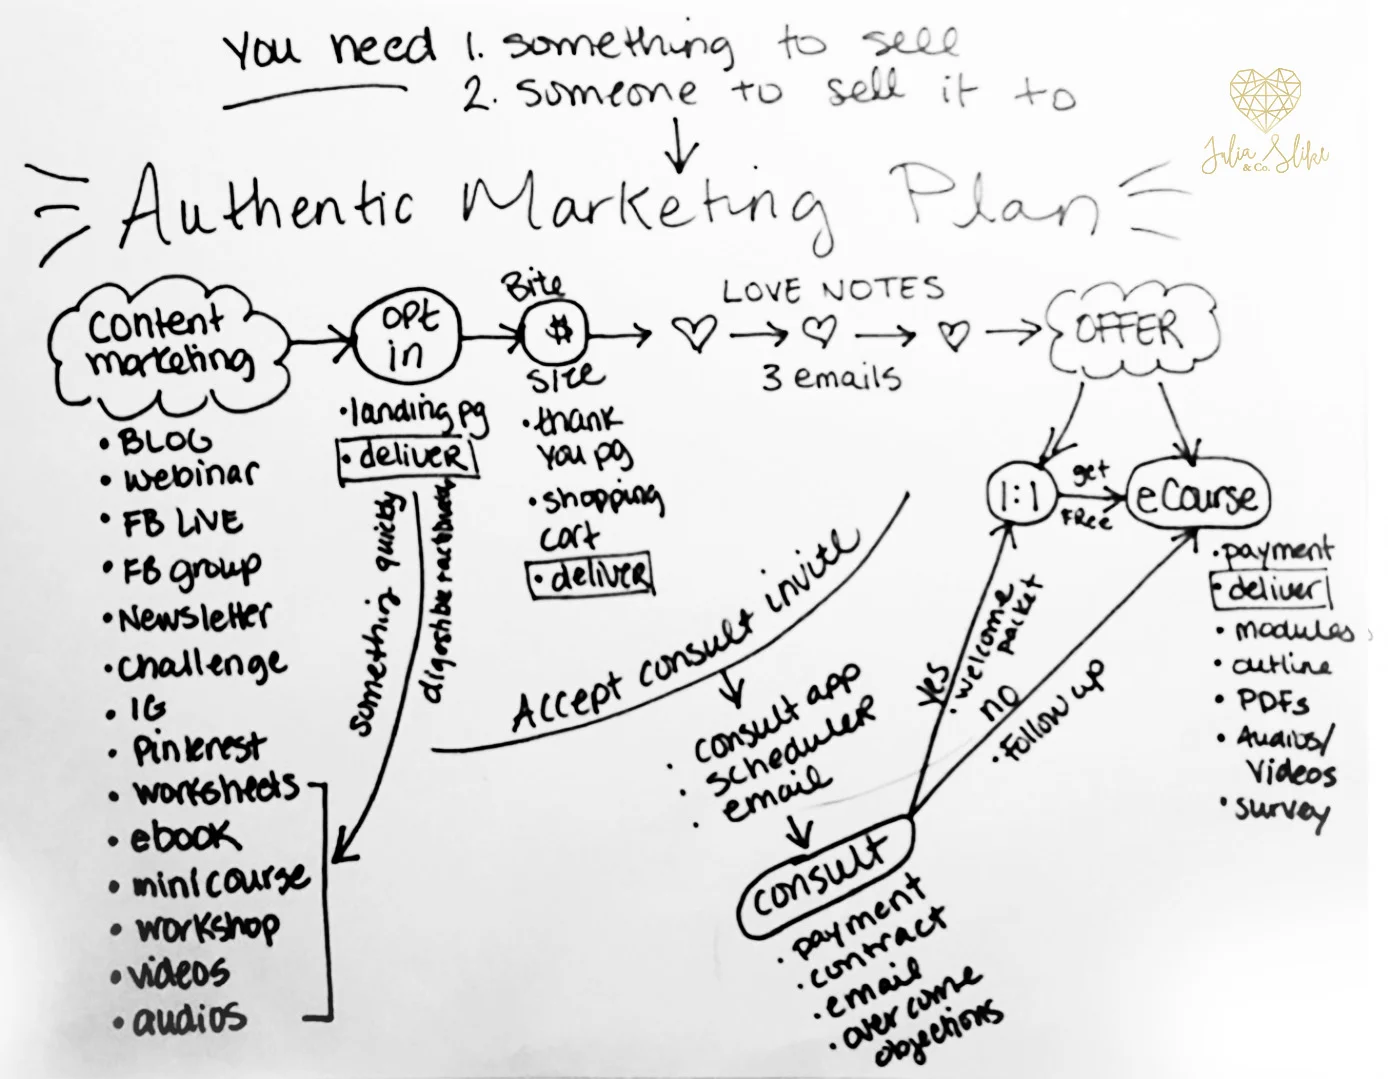 You need 1. something to sell
2. someone to sell it to
Julia Slike
& Co.
Authentic Marketing Plan
content
marketing
• BLOG
• webinar
• FB LIVE
• FB group
• Newsletter
• challenge
• IG
• Pinterest
• worksheets
• ebook
• minicourse
• workshop
• videos
• audios
opt
in
• landing pg
• deliver
something quickly
digestible
Bite
$
size
• thank
you pg
• shopping
cart
• deliver
LOVE NOTES
3 emails
OFFER
1:1
get
FRee
eCourse
• payment
• deliver
• modules
• outline
• PDFs
• Audios/
Videos
• survey
Accept consult invite
• consult app
• scheduler
• email
consult
• payment
• contract
• email
• over come
objections
yes
• welcome
packet
no
• Follow up